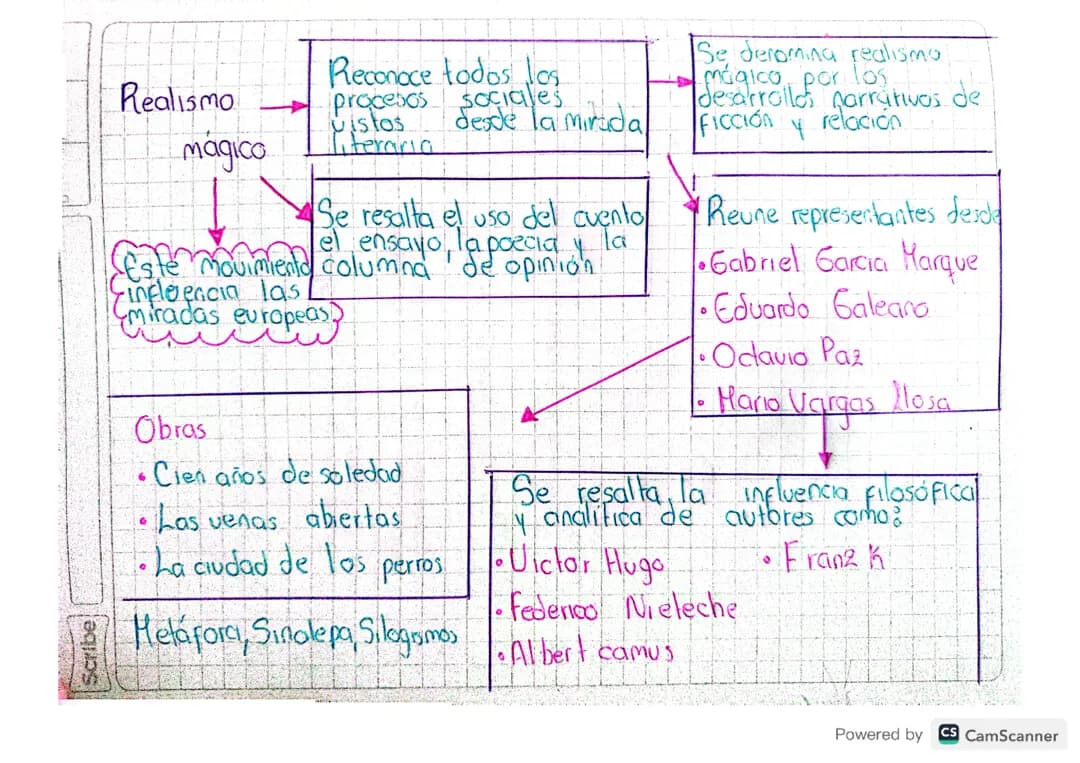 Realismo
mágico
Reconoce todos los
procesos sociales
vistos desde la mirada
literaria
Se denomina realismo
mágico, por los
desarrollos narrativos de
ficción y relación
Se resalta el uso del cuento
el ensayo, la poecia y la
columna de opinión
Este movimiento
influencia las
miradas europeas
Reune representantes desde
• Gabriel Garcia Marque
• Eduardo Galeano
• Octavio Paz
• Mario Vargas llosa
Obras
• Cien años de soledad
• Las venas abiertas
• La ciudad de los perros
Metáfora, Sinalepa, Silogismos
Se resalta, la influencia filosófica
y analítica de autores como:
• Victor Hugo
• Franz K
• Federico Nieleche
• Albert camus
Scribe
Powered by CS CamScanner